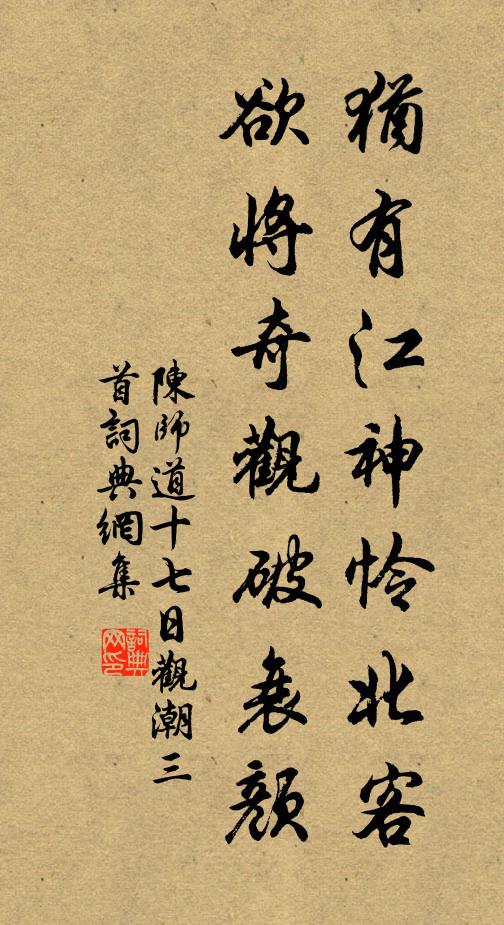 猶有江神怜北客
欲將奇觀破衰顏
陳師道十七日觀潮三
首詞典網集
詞典
网印